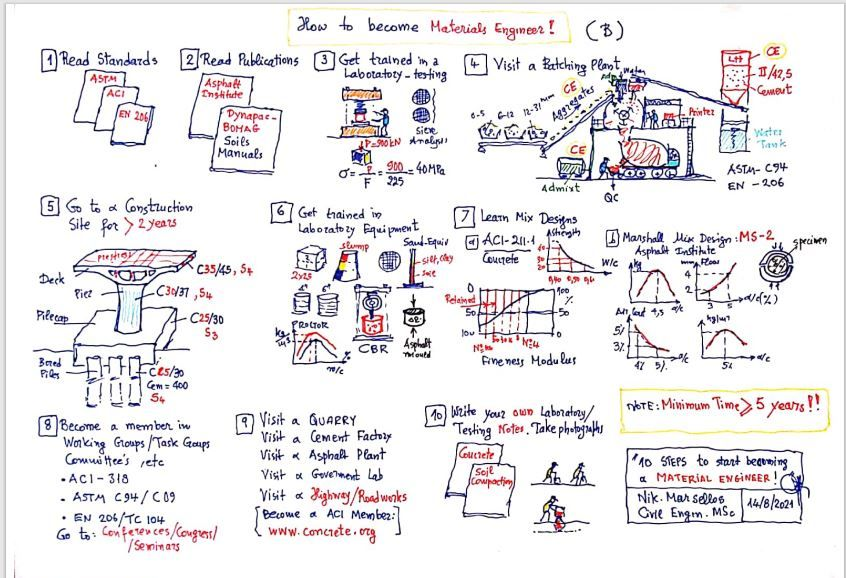 How to become Materials Engineer! (B)
1 Read Standards
ASTM
ACI
EN 206
2 Read Publications
Asphalt
Institute
Dynapac-
BOMAG
Soils
Manuals
3 Get trained in a
Laboratory-testing
Sieve
Analysis
P=900kN
σ = P/F = 900/225 = 40MPa
4 Visit a Batching Plant
0-5 6-12 12-31 mm
Aggregates
CE
Water
Printer
CE
II/42,5
Cement
Water
Tank
CE
Admixt
QC
ASTM-C94
EN-206
5 Go to a Construction
Site for > 2 years
Deck
C35/45, S4
Pier
C30/37, S4
Pilecap
C25/30
S3
Bored
Piles
C25/30
Cem=400
S4
6 Get trained in
Laboratory Equipment
slump
Sand-Equiv
silt, clay
PROCTOR
CBR
Asphalt
mould
7 Learn Mix Designs
a ACI-211.1
Concrete
Strength
W/C
Retained
100
%
50
0
Nº4
Fineness Modulus
b Marshall Mix Design: MS-2
Asphalt Institute
specimen
kg
Flow
8 Become a member in
Working Groups/Task Groups
Committee's, etc
• ACI-318
• ASTM C94/C09
• EN 206/TC 104
Go to: Conferences/Congress/
/Seminars
9 Visit a QUARRY
Visit a Cement Factory
Visit a Asphalt Plant
Visit a Goverment Lab
Visit a Highway/Roadworks
[Become a ACI Member:]
www.concrete.org
10 Write your own Laboratory/
Testing Notes. Take photographs
Concrete
Soil
Compaction
NOTE: Minimum Time ≥ 5 years!!
"10 STEPS to start becoming
a MATERIAL ENGINEER!"
Nik. Marsellos
Civil Engin. MSc
14/8/2021